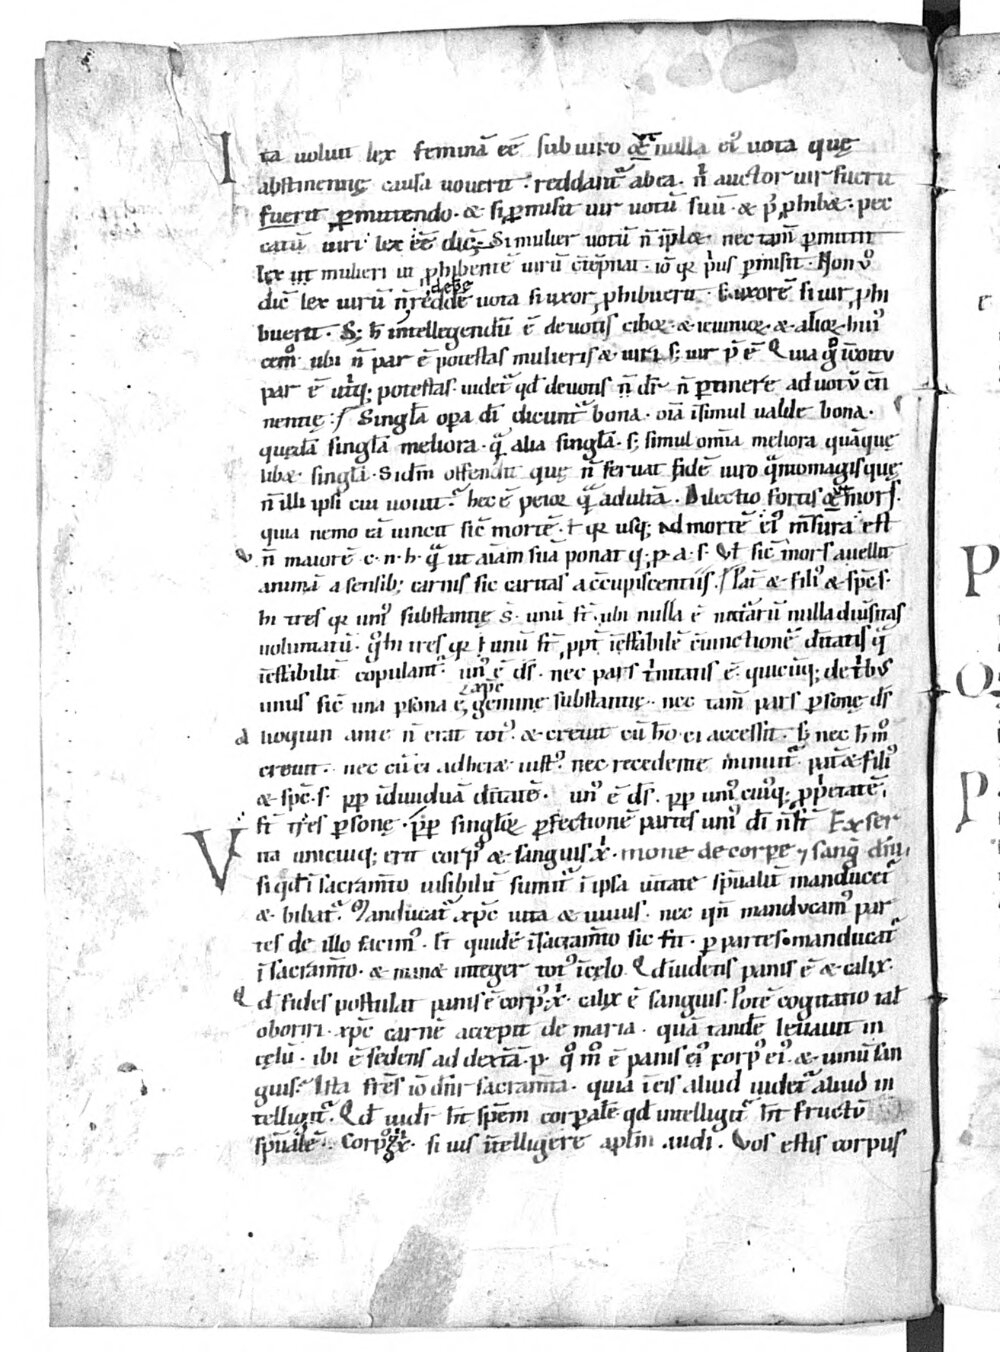 Ita uoluit lex feminā eē sub uiro ut nulla ei' uota quę
abstinentię causa uouerit reddant᷑ ab ea. n̄ auctor uir fuerit
fuerit ꝑmittendo. & si ꝑmisit uir uotū suū. & p' ꝓhib&. pec
catū uiri lex eē dic̄. Si mulier uotū n̄ īpl&. nec tam̄ ꝑmittit
lex ut mulieri ut ꝓhibentē uirū c̄tēpnat. iō qr p'us ꝑmisit. Non u°
dic̄ lex uirū n̄ reddē uota si uxor ꝓhibuerit. & uxorē si uir ꝓhi
debe
buerit. S; h' intellegendū ē de uotis cibor & ieiunior & alior hui'
cemo' ubi n̄ par ē potestas mulieris & uiri s; uir p̄ ē. Quia g° ī coitu
par ē utiq; potestas. uidet᷑ qd de uotis n̄ dr̄ n̄ ꝑtinere ad uotū c̄ti
nentię. Singl'a oꝑa dī dicunt᷑ bona. oīa īsimul ualde bona.
quędā singl'a meliora. q̄ alia singl'a. s; simul omīa meliora quā quę
lib& singl'a. Si dm̄ offendit quę n̄ seruat fidē uiro q̄ntomagis quę
n̄ illi ipsi cui uouit? hec ē peior q̄ adultā. Dilectio fortis ut mors.
quia nemo eā uincit sic̄ mortē. t' qr usq; ad mortē ei' mīsura est
n̄ maiorē. c. n. h. q̄ ut aīam suā ponat q; p. a. s. Vt' sic̄ mors auellit
animā a sensib; carnis sic caritas a c̄cupiscentiis. Pat̄ & fili' & spc̄ s.
hi tres qr uni' substantię s̄. unū st̄. ubi nulla ē naturarū nulla diūsitas
uoluntatū. q° hi tres qr t' unū st̄ ꝓpt̄ ieffabilē c̄iunctionē ditatis q̄
ieffabilit̄ copulant᷑. un' ē ds̄. nec pars t'nitatis ē. quicūq; de t'b'
unus sic̄ una psona ē
xpc̄
geminę substantię. nec tam̄ pars ꝑsonę ds̄
uoqiun ante n̄ erat tot'. & creuit cū ho ei accessit. s; nec h' mo
creuit. nec cū ei adher& iust' nec recedente minuit᷑. pat̄ & fili'
& spc̄ s. ꝓp īdiuiduā ditatē. un' ē ds̄. ꝓp uni'cui'q; ꝓprietatē
st̄ tres ꝑsonę. ꝓp singlor ꝑfectionē partes uni' dī n̄ st̄. Ex ser
Vita unicuiq; erit corp' & sanguis x'. mone de corpe & sang' dn̄i
si qd ī sacram̄to uisibilit̄ sumit᷑ ī ipsa uitate sp̄ualit̄ manducet᷑
& bibat᷑. Manducat᷑ xpc̄ uita & uiuus. nec qn̄ manducam' par
tes de illo facim'. Et quidē ī sacram̄to sic fit. ꝑ partes manducat᷑
ī sacram̄to. & man& integer tot' ī cęlo. Qd uidetis panis ē & calix.
Qd fides postulat panis ē corp' x'. calix ē sanguis. Potē cogitatio tal'
oboriri. xpc̄ carnē accepit de maria. quā tandē leuauit in
cęlū. ibi ē sedens ad dextā p. q° m° ē panis ei' corp' ei'. & uinū san
guis. Ista frēs iō dnr̄ sacram̄ta. quia ī eis aliud uidet᷑ aliud in
telligit᷑. Qd uidet̄ h't spēm corpalē qd intelligit᷑ h't fructū
sp̄ualē. Corp' g° x' si uis īntelligere aplm̄ audi. Vos estis corpus